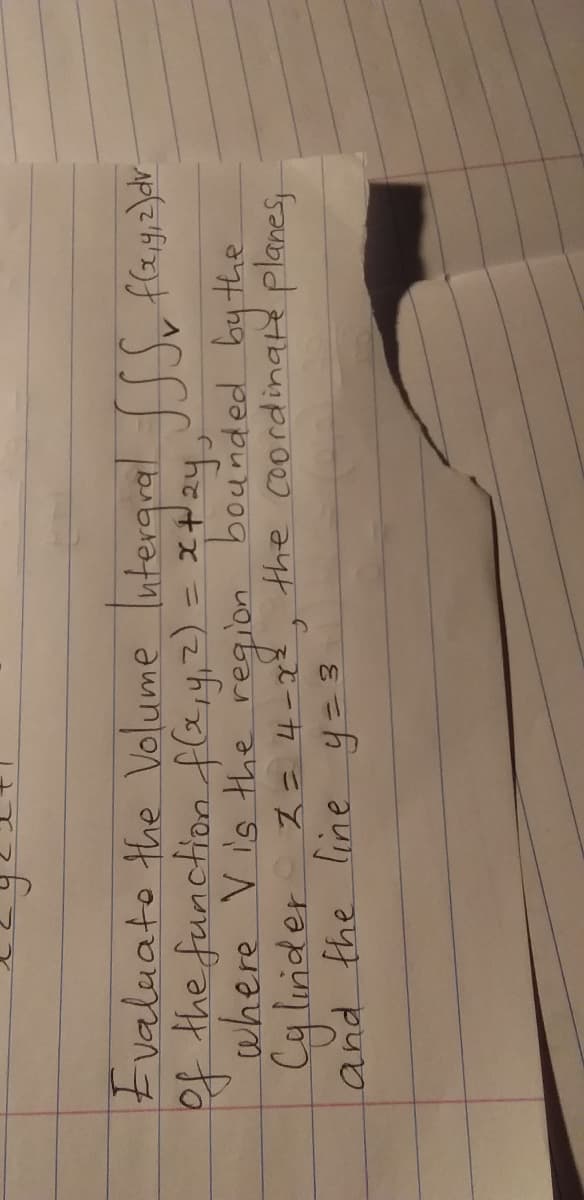 Evaluate the Volume Intergral ∫∫∫v f(x,y,z)dv
of the function f(x,y,z) = x+2y,
where V is the region bounded by the
Cylinder z = 4-x², the coordinate planes,
and the line y=3